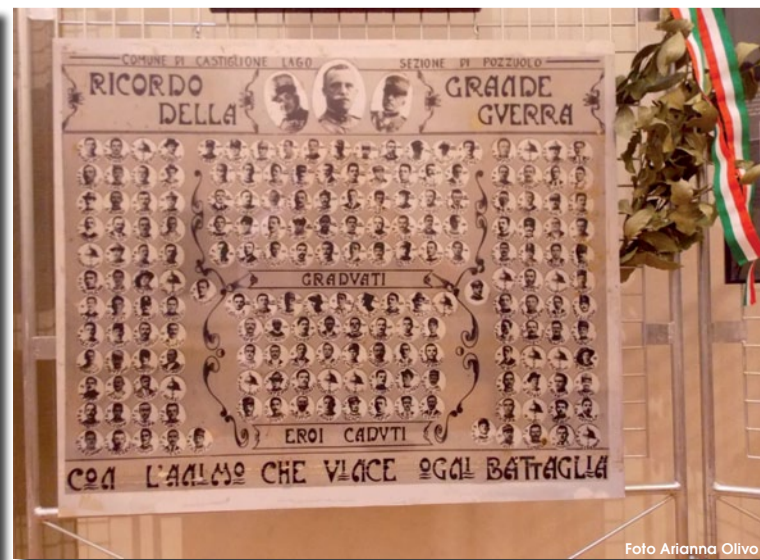 COMUNE DI CASTIGLIONE LAGO SEZIONE DI POZZUOLO
RICORDO GRANDE
DELLA GVERRA
GRADVATI
EROI CADVTI
CON L'ANIMO CHE VINCE OGNI BATTAGLIA
Foto Arianna Olivo